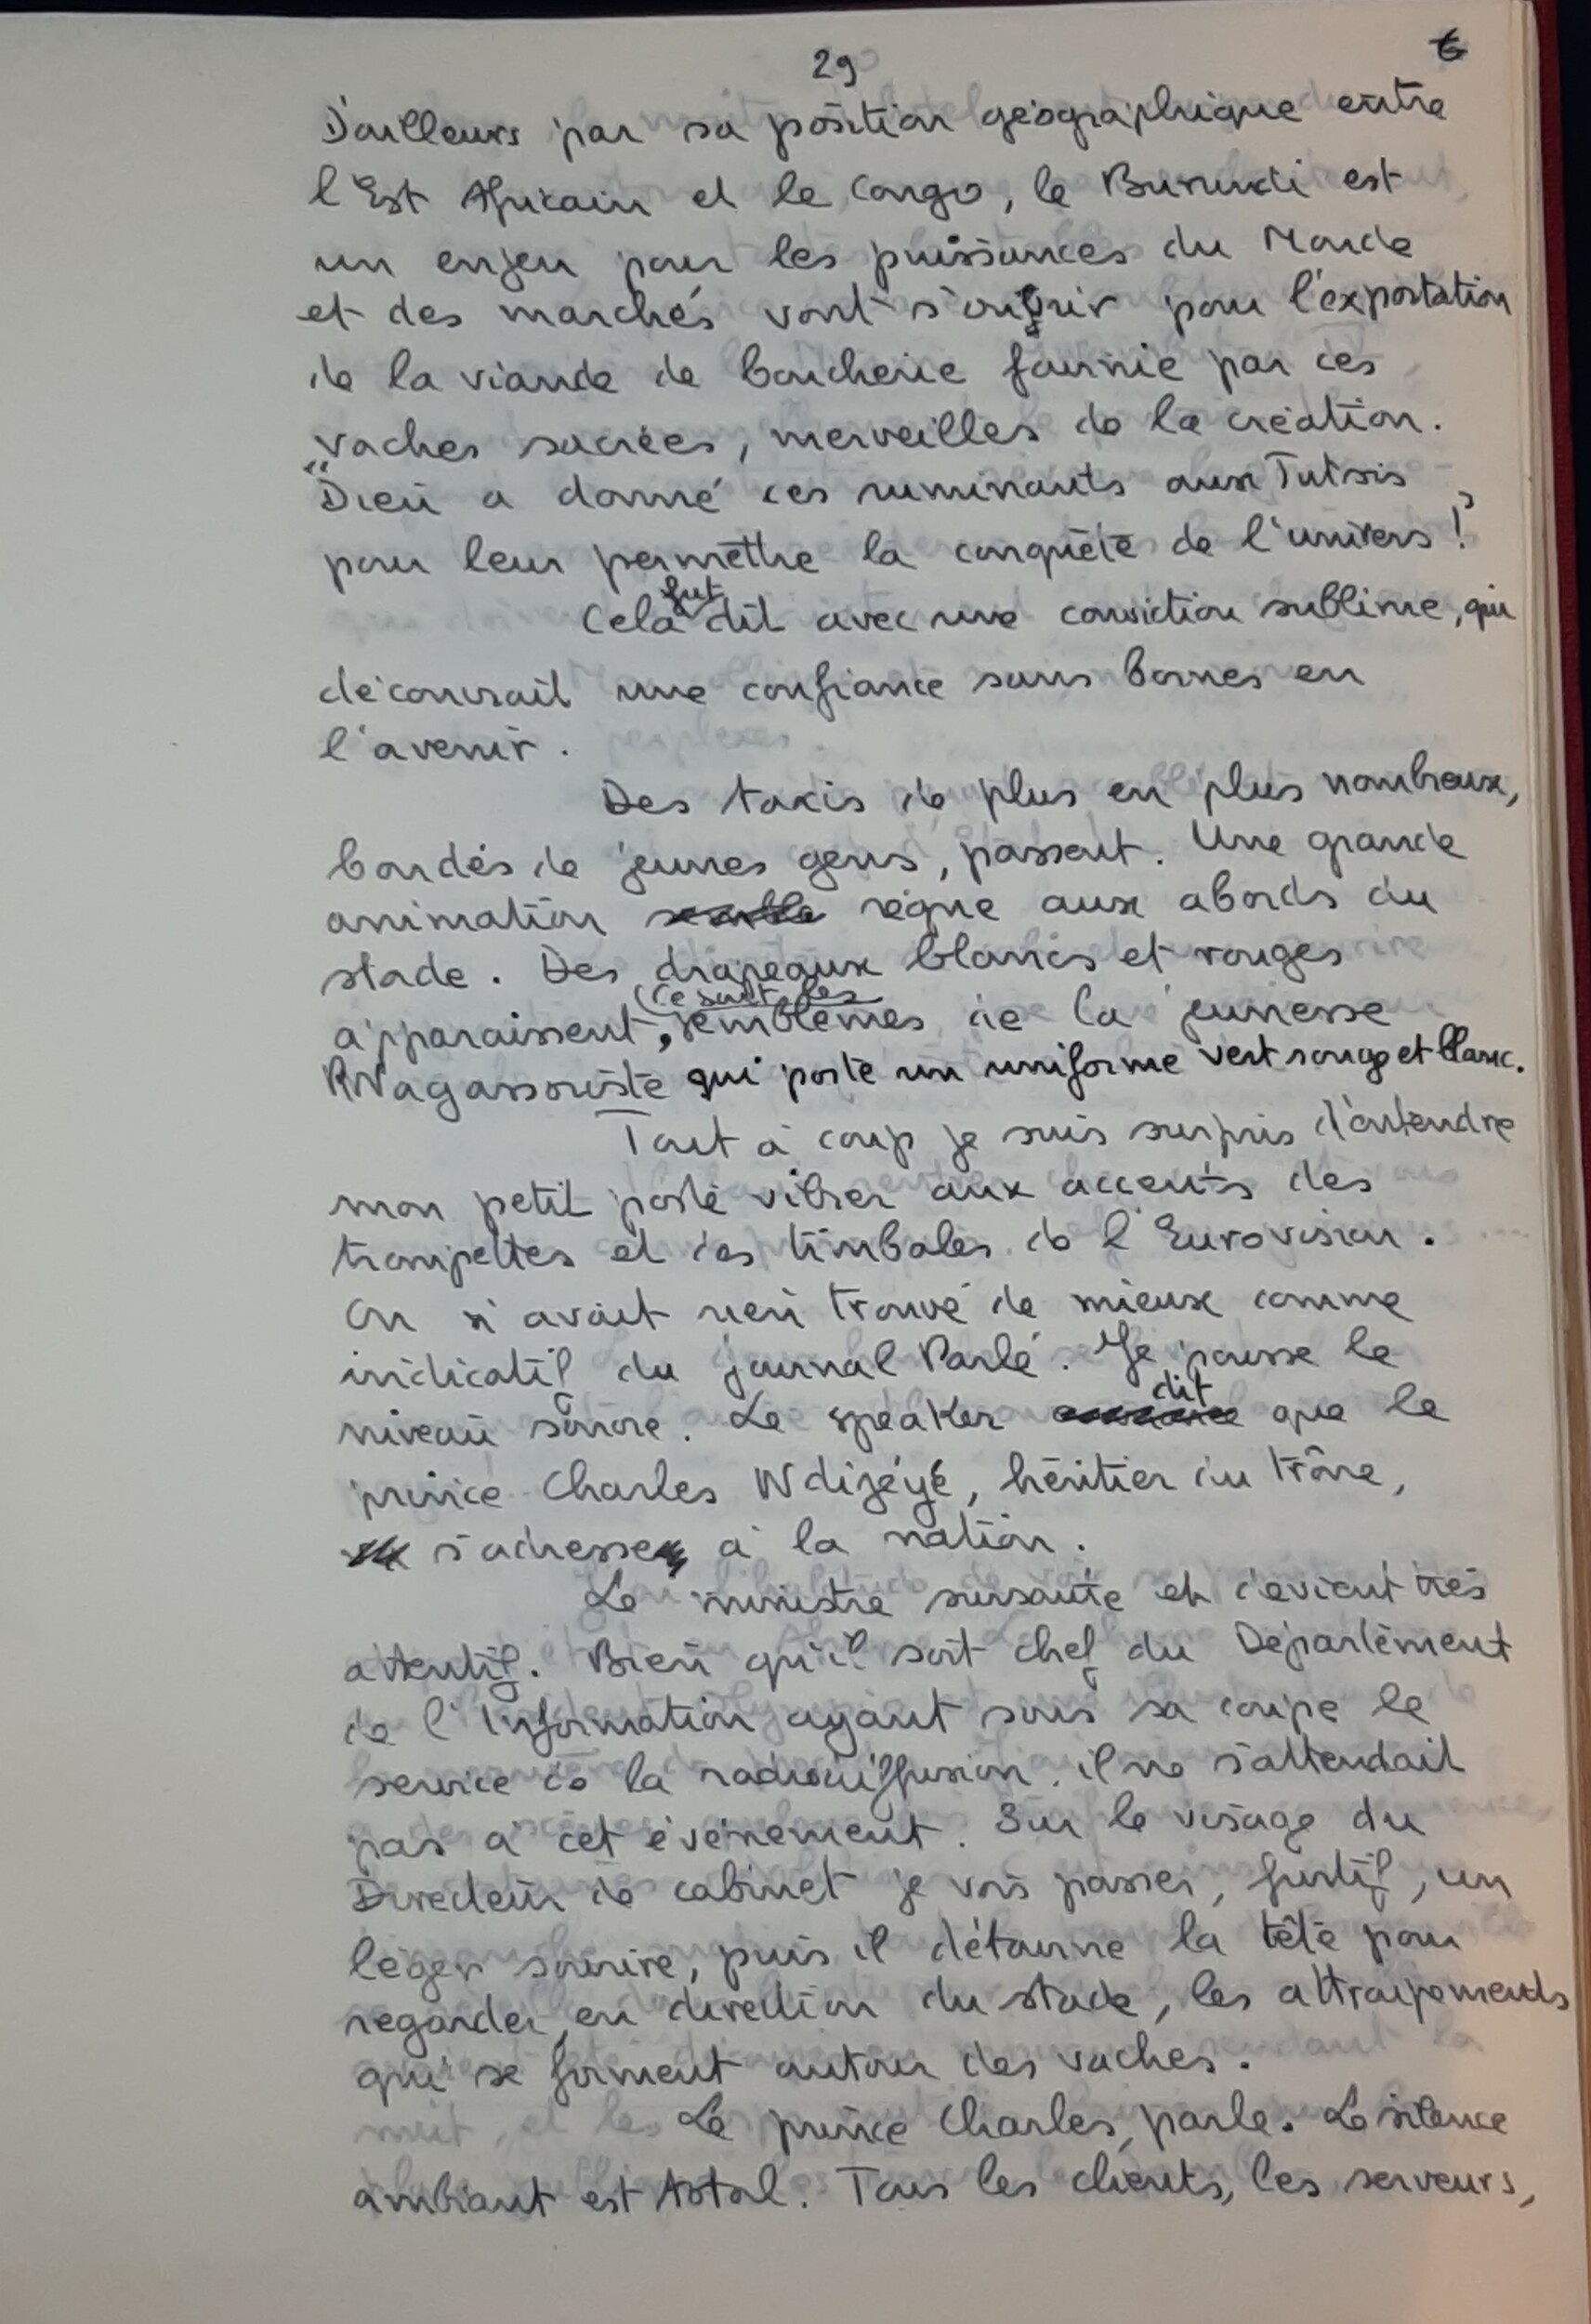 29
D'ailleurs par sa position géographique entre
l'Est Africain et le Congo, le Burundi est
un enjeu pour les puissances du Monde
et des marchés vont s'ouvrir pour l'exportation
de la viande de boucherie fournie par ces
vaches sacrées, merveilles de la création.
"Dieu a donné ces ruminants aux Tutsis
pour leur permettre la conquête de l'univers !"
Cela fut dit avec une conviction sublime, qui
découvrait une confiance sans bornes en
l'avenir.
Des taxis de plus en plus nombreux,
bondés de jeunes gens, passent. Une grande
animation règne aux abords du
stade. Des drapeaux blancs et rouges
apparaissent, (ce sont les emblèmes de la jeunesse
RWagassoriste qui porte un uniforme vert rouge et blanc.
Tout à coup je suis surpris d'entendre
mon petit poste vibrer aux accents des
trompettes et des timbales de l'Eurovision.
On n'avait rien trouvé de mieux comme
indicatif du journal Parlé. Je pousse le
niveau sonore. Le speaker dit que le
prince Charles Ndizéyé, héritier du trône,
s'adresse à la nation.
Le ministre sursaute et devient très
attentif. Bien qu'il soit chef du Département
de l'Information ayant sous sa coupe le
service de la radiodiffusion, il ne s'attendait
pas à cet évènement. Sur le visage du
Directeur de cabinet je vois passer, furtif, un
léger sourire, puis il détourne la tête pour
regarder, en direction du stade, les attroupements
qui se forment autour des vaches.
Le prince Charles, parle. Le silence
ambiant est total. Tous les clients, les serveurs,